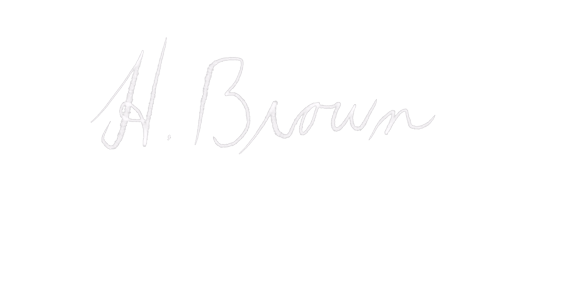 H. Brown